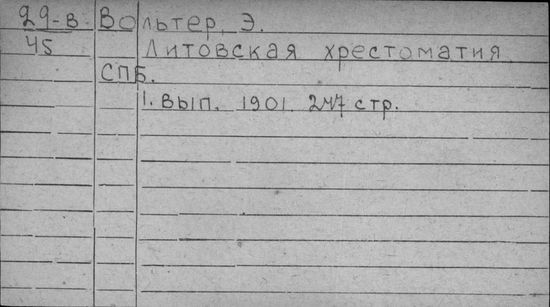 29-в. Вольтер, Э.
45 Литовская хрестоматия.
СПБ.
1. вып. 1901. 247 стр.